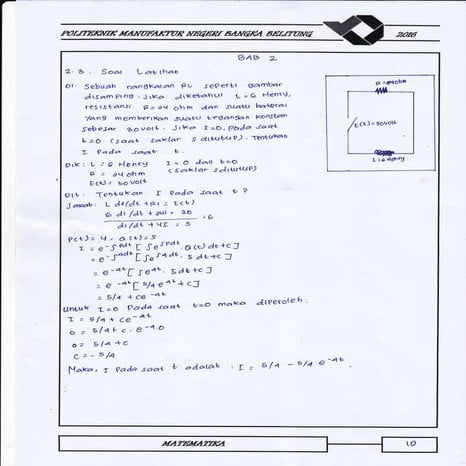 POLITEKNIK MANUFAKTUR NEGERI BANGKA BELITUNG
2016
BAB 2
2.3. Soal Latihan
01. Sebuah rangkaian RL seperti gambar
disamping. Jika diketahui L = 6 Henry,
resistansi R = 24 ohm dan suatu baterai
yang memberikan suatu tegangan konstan
sebesar 30 volt. Jika I = 0, pada saat
t = 0 (saat saklar s ditutup). Tentukan
I pada saat t.
R = 24 ohm
E(t) = 30 volt
L = 6 Henry
Dik: L = 6 Henry I = 0 dan t = 0
R = 24 ohm (saklar s ditutup)
E(t) = 30 volt
Dit: Tentukan I pada saat t?
Jawab: L di/dt + RI = E(t)
6 di/dt + 24I = 30
: 6
di/dt + 4I = 5
P(t) = 4, Q(t) = 5
I = e^-∫Pdt [∫e^∫Pdt Q(t) dt + c]
= e^-∫4dt [∫e^∫4dt. 5 dt + c]
= e^-4t [∫e^4t. 5dt + c]
= e^-4t [5/4 e^4t + c]
= 5/4 + ce^-4t
Untuk I = 0 pada saat t = 0 maka diperoleh:
I = 5/4 + Ce^-4t
0 = 5/4 + c. e^-4.0
0 = 5/4 + c
C = - 5/4
Maka, I pada saat t adalah : I = 5/4 - 5/4 e^-4t
MATEMATIKA
10